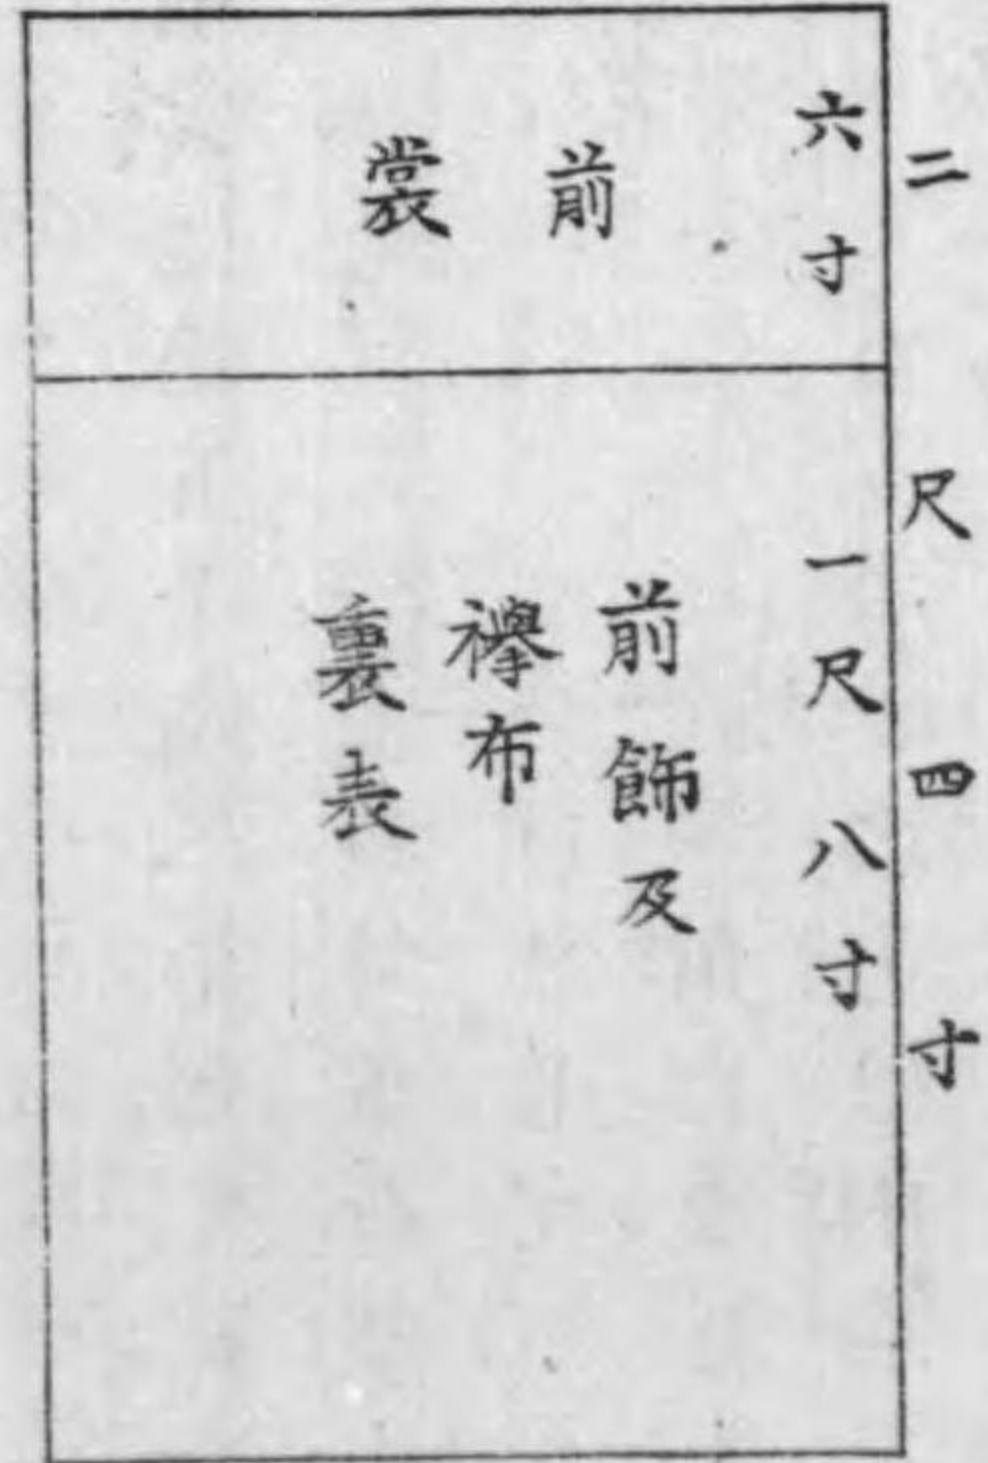 二尺四寸
六寸
前裳
一尺八寸
前飾及
襷布
裏表